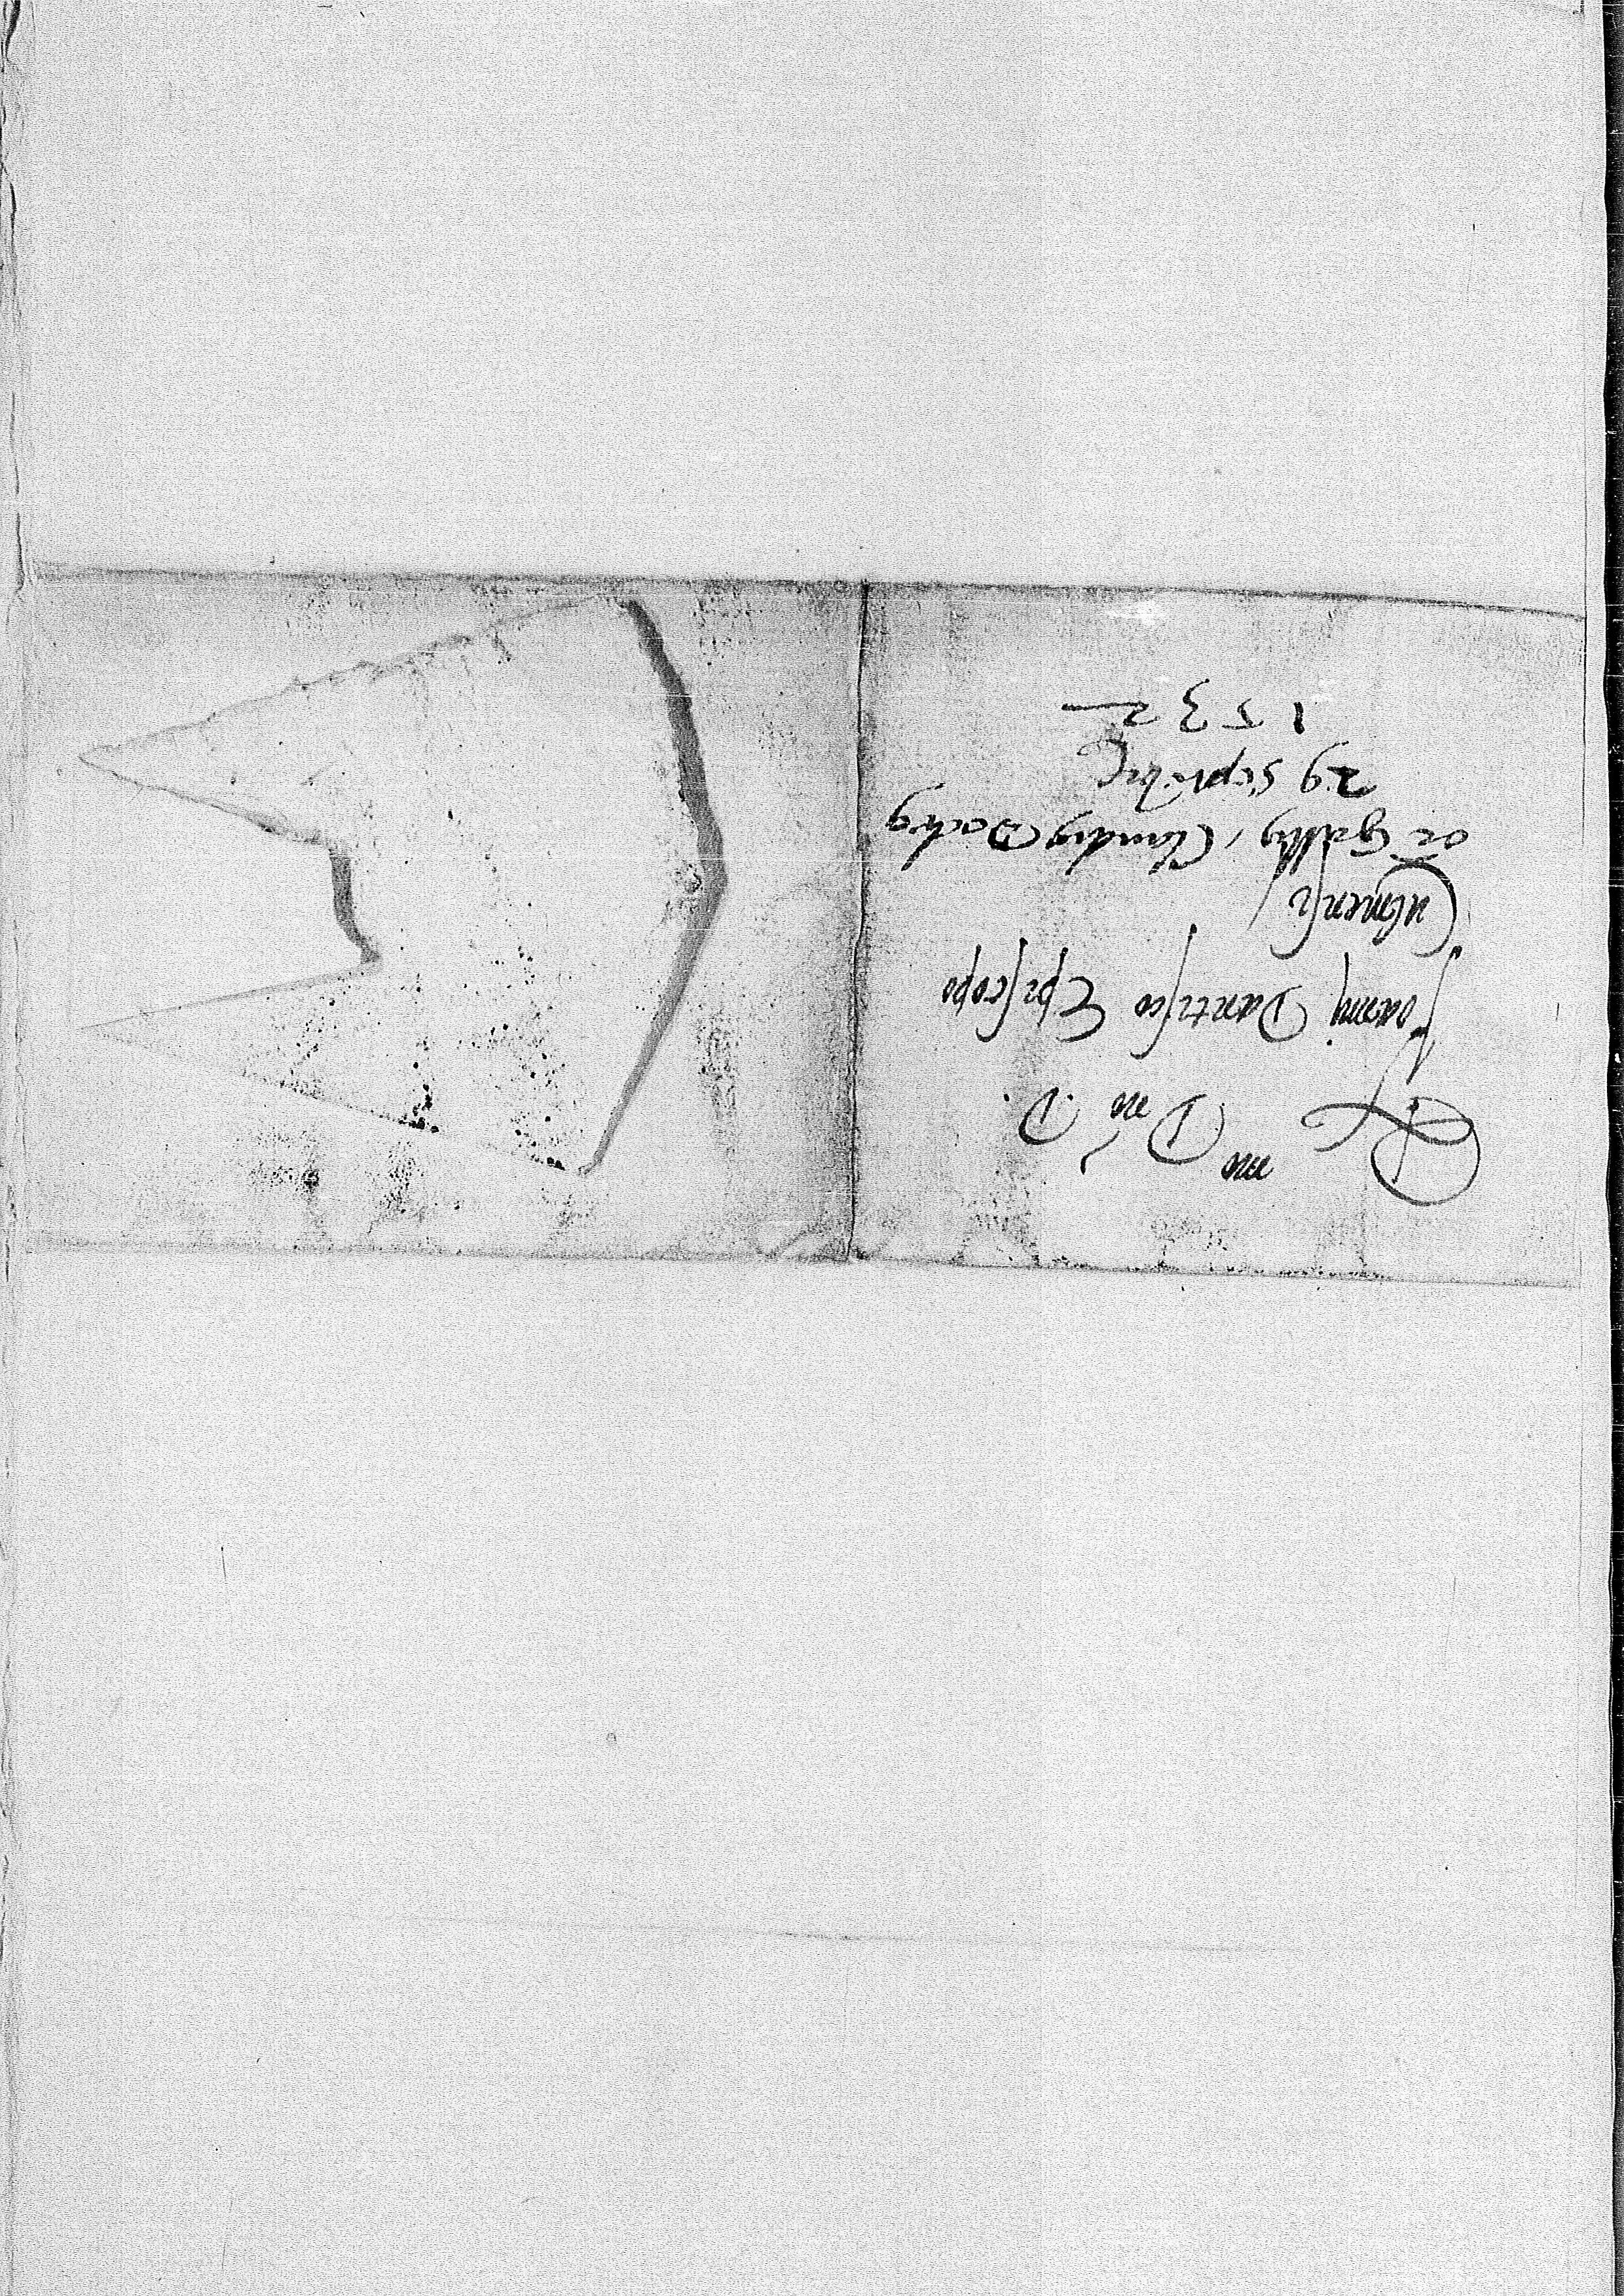 R mo D no D.
Joanni Dantisco Episcopo
Culmensi
Gallus, Claudius Doctus
29 septēbris
1532